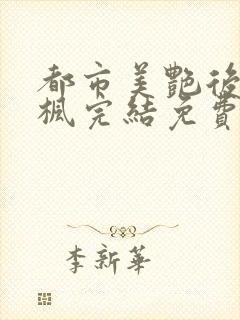 都市美艷後
楓完結免費
李新華